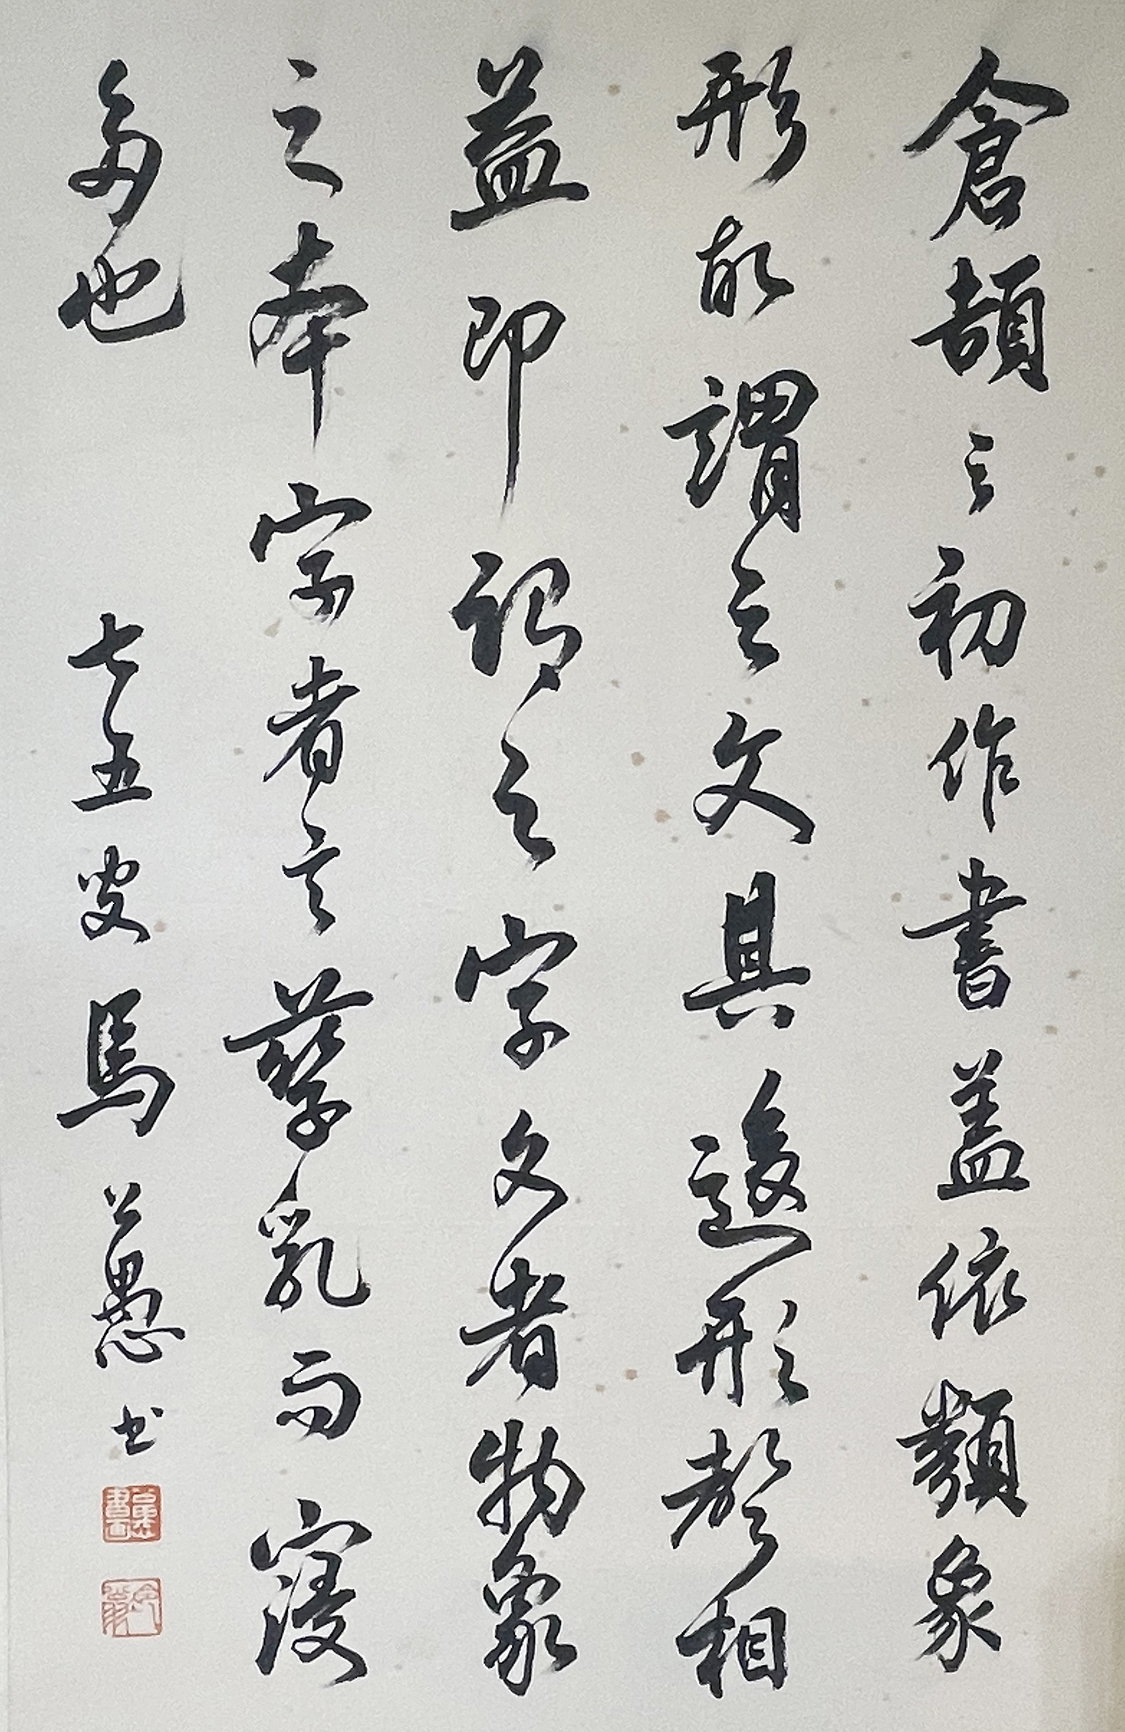 倉頡之初作書蓋依類象
形故謂之文其後形聲相
益即謂之字文者物象
之本字者言孳乳而寖
多也
七五叟馬公愚書